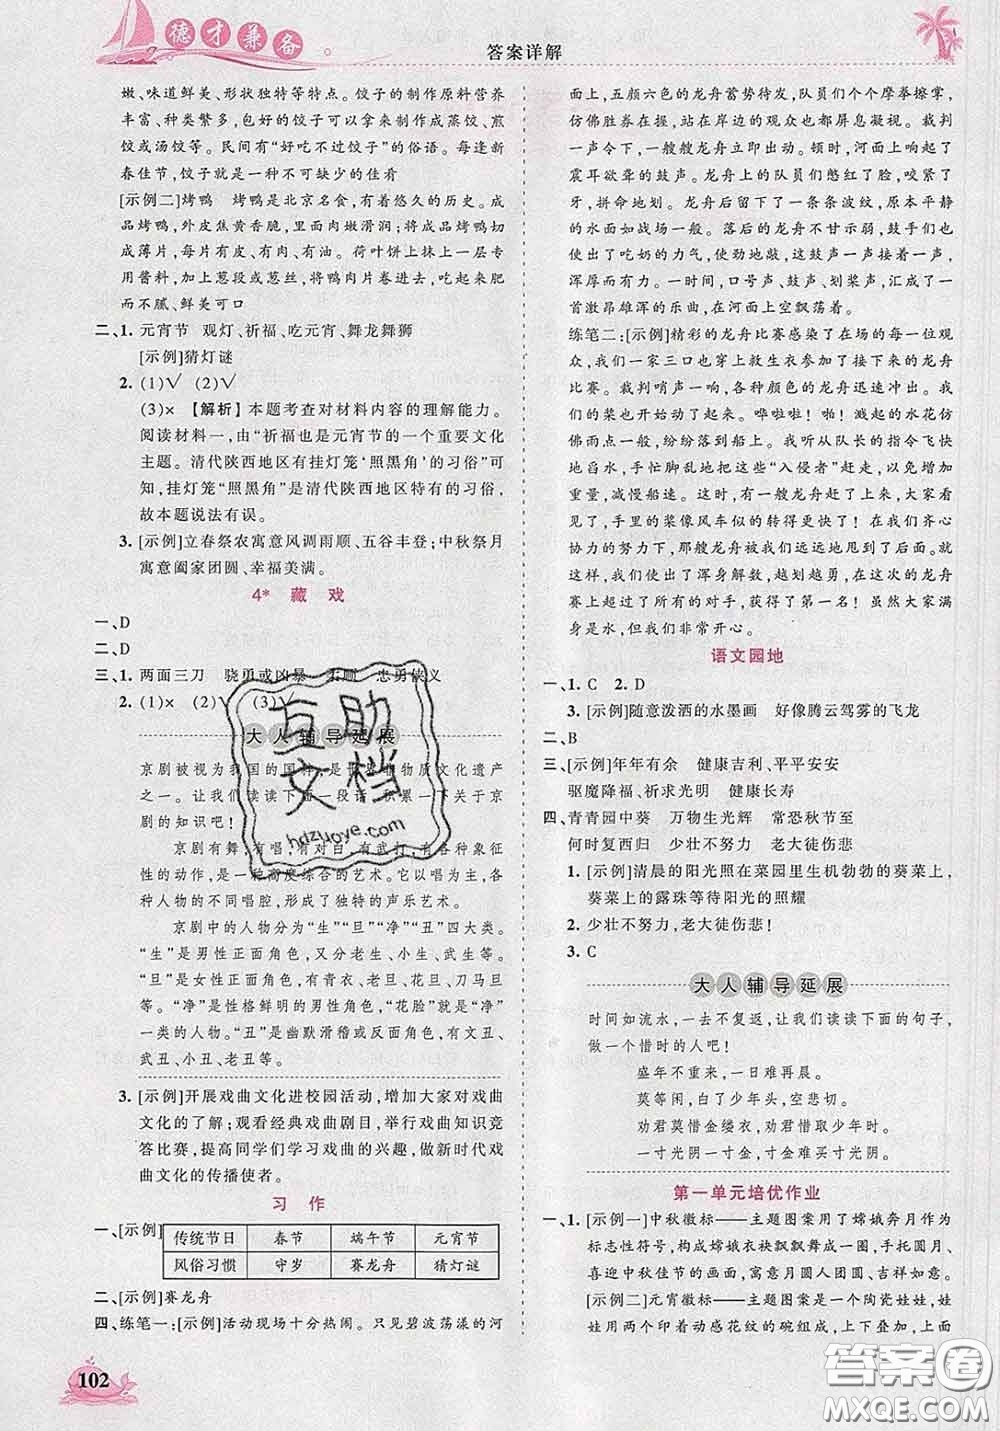 德才兼备
答案详解
嫩、味道鲜美、形状独特等特点。饺子的制作原料营养
丰富、种类繁多，包好的饺子可以拿来制成蒸饺、煎
饺或汤饺等。民间有“好吃不过饺子”的俗语。每逢新
春佳节，饺子就是一种不可缺少的佳肴
[示例二]烤鸭　烤鸭是北京名食，有着悠久的历史。成
品烤鸭，外皮焦黄香脆，里面肉嫩滑润；将成品烤鸭切
成薄片，每片有皮、有肉、有油。荷叶饼上抹上一层专
用酱料，加上葱段或葱丝，将鸭肉片卷进去，吃起来肥
而不腻、鲜美可口
二、1. 元宵节　观灯、祈福、吃元宵、舞龙舞狮
[示例]猜灯谜
2. (1)√　(2)√
(3)×　【解析】本题考查对材料内容的理解能力。
阅读材料一，由“祈福也是元宵节的一个重要文化
主题。清代陕西地区有挂灯笼‘照黑角’的习俗”可
知，挂灯笼“照黑角”是清代陕西地区特有的习俗，
故本题说法有误。
3. [示例]立春祭农寓意风调雨顺、五谷丰登；中秋祭月
寓意阖家团圆、幸福美满。
4* 藏　戏
一、D
二、D
三、1. 两面三刀　骁勇或凶暴　柔顺　忠勇侠义
2. (1)×　(2)√　(3)√
大人辅导延展
京剧被视为我国的国粹，是世界非物质文化遗产
之一。让我们读读下面一段话，积累一下关于京
剧的知识吧！
京剧有舞，有唱，有对白，有武打，有各种象征
性的动作，是一种高度综合的艺术。它根据不同
人物用不同的唱腔，形成了独特的声乐艺术。
京剧中的人物分为“生”“旦”“净”“丑”四大类。
“生”是男性正面角色，又分老生、小生、武生等。
“旦”是女性正面角色，有青衣、老旦、花旦、刀马旦
等。“净”是性格鲜明的男性角色，“花脸”就是这
一类的人物。“丑”是幽默滑稽或反面角色，有文丑、
武丑、小丑、老丑等。
3. [示例]开展戏曲文化进校园活动，增加大家对戏曲
文化的了解；观看经典戏曲剧目，举行戏曲知识竞
答比赛，提高同学们学习戏曲的兴趣，做新时代戏
曲文化的传播使者。
习　作
一、[示例]
传统节日　春节　端午节　元宵节
风俗习惯　守岁　赛龙舟　猜灯谜
二、[示例]赛龙舟
四、练笔一：[示例]活动现场十分热闹。只见碧波荡漾的河
102
面上，五颜六色的龙舟蓄势待发，队员们个个摩拳擦掌，
仿佛胜券在握，站在岸边的观众也都屏息凝视。裁判
一声令下，一艘艘龙舟立即出动。顿时，河面上响起了
震耳欲聋的鼓声。龙舟上的队员们憋红了脸，咬紧了
牙，拼命地划。龙舟后留下了一条条波纹，原本平静
的水面如战场一般。落后的龙舟不甘示弱，鼓手们也
使出了吃奶的力气，使劲地敲，这鼓声一声连着一声，
浑厚而有力。一时间，口号声、鼓声、划桨声，合成了一
首激昂雄浑的乐曲，在河面上空飘荡着。
练笔二：[示例]精彩的龙舟比赛感染了在场的每一位观
众，我们一家三口也穿上救生衣参加了接下来的龙舟
比赛。裁判哨声一响，各种颜色的龙舟迅速冲出。我
们的桨也划动了起来。哗啦啦！啪！溅起的水花仿
佛雨点一般，纷纷落到船上。我只好听从队长的指令飞快
地舀水，手忙脚乱地把这些“入侵者”赶走，以免增加
重量，减慢船速。这时，有一艘龙舟赶了上来，大家看
见了，手里的桨像风车似的转得更快了！在我们齐心
协力的努力下，那艘龙舟被我们远远地甩到了后面。就
这样，我们使出了浑身解数，越划越勇。在这次的龙舟
赛上超过了所有的对手，获得了第一名！虽然大家满
身是水，但我们非常开心。
语文园地
一、1. C　2. D
3. [示例]随意泼洒的水墨画　好像腾云驾雾的飞龙
二、B
三、[示例]年年有余　健康吉利、平平安安
驱魔降福、祈求光明　健康长寿
四、青青园中葵　万物生光辉　常恐秋节至
何时复西归　少壮不努力　老大徒伤悲
1. [示例]清晨的阳光照在菜园里生机勃勃的葵菜上，
葵菜上的露珠等待阳光的照耀
2. 少壮不努力，老大徒伤悲！
3. C
大人辅导延展
时间如流水，一去不复返，让我们读读下面的句子，
做一个惜时的人吧！
盛年不重来，一日难再晨。
莫等闲，白了少年头，空悲切。
劝君莫惜金缕衣，劝君惜取少年时。
一寸光阴一寸金，寸金难买寸光阴。
第一单元培优作业
一、1. [示例一]中秋徽标——主题图案用了嫦娥奔月作为
标志性符号，构成嫦娥衣袂飘飘舞动，手托圆月、
喜迎中秋佳节的画面，寓意月圆人团圆、吉祥如意。
[示例二]元宵徽标——主题图案是一个陶瓷娃娃，娃
娃用两个印着动感花纹的碗，上下叠加，上面
互助文档
hdzuoye.com
答案圈
MXQE.COM